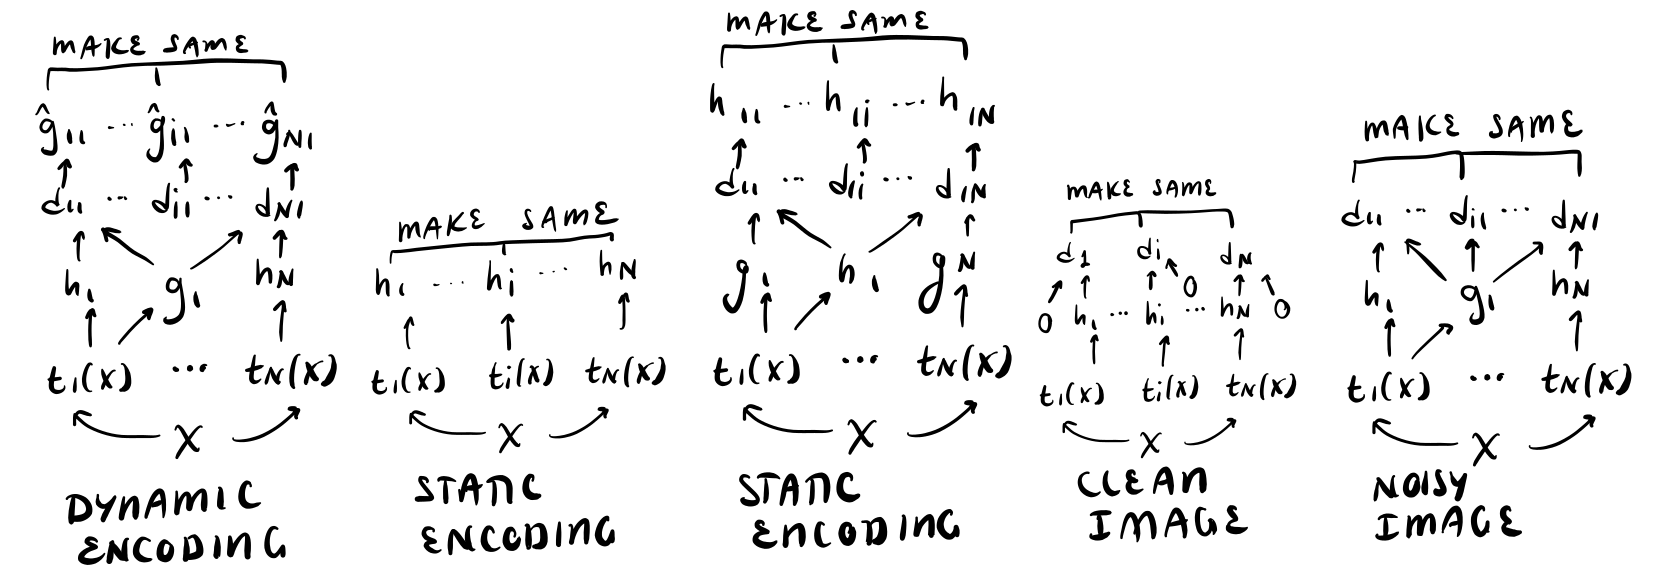 MAKE SAME
ĝ11 ... ĝi1 ... ĝN1
d11 ... di1 ... dN1
h1 g1 hN
t1(x) ... tN(x)
x
DYNAMIC
ENCODING
MAKE SAME
h1 ... hi ... hN
t1(x) ti(x) tN(x)
x
STATIC
ENCODING
MAKE SAME
h11 ... h1i ... h1N
d11 ... d1i ... d1N
g1 h1 gN
t1(x) ... tN(x)
x
STATIC
ENCODING
MAKE SAME
d1 di dN
0 h1 ... hi 0 ... hN 0
t1(x) ti(x) tN(x)
x
CLEAN
IMAGE
MAKE SAME
d11 ... di1 ... dN1
h1 g1 hN
t1(x) ... tN(x)
x
NOISY
IMAGE